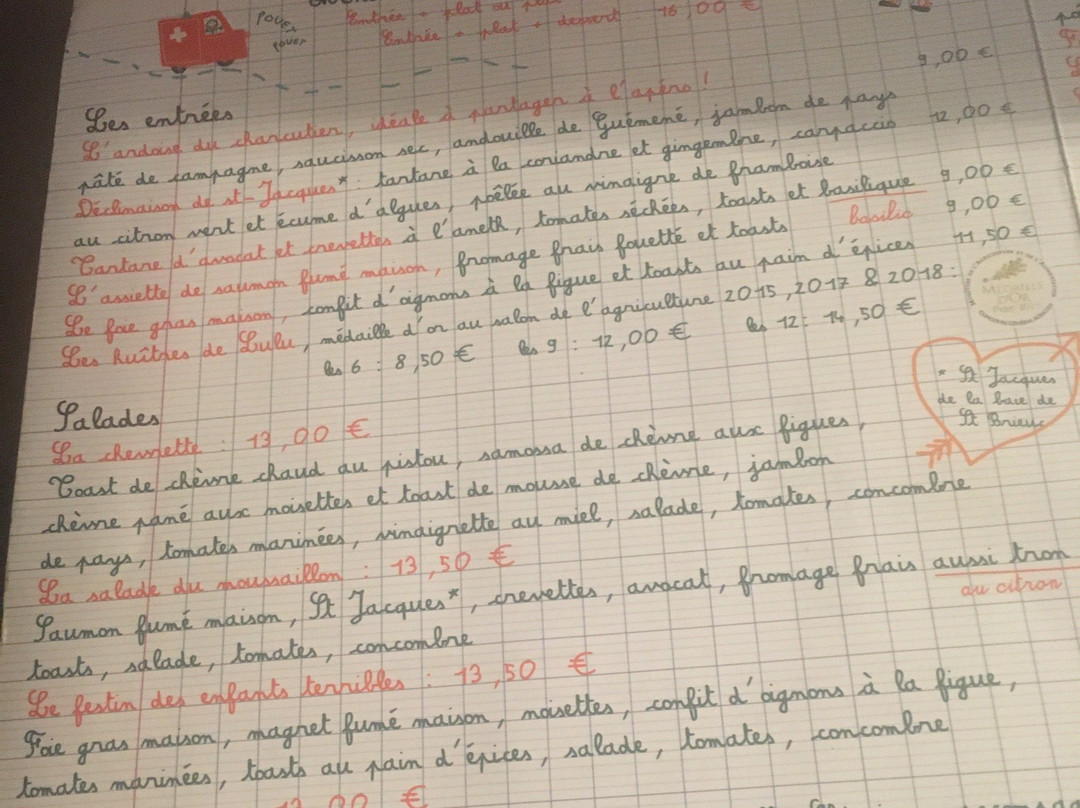 Pouet
pouet
Entrée + plat ou
Entrée + plat + dessert 16,00 €
Les entrées
L'ardoise du charcutier, idéale à partager à l'apéro ! 9,00 €
pâté de campagne, saucisson sec, andouille de Guémené, jambon de pays
Déclinaison de st-Jacques* : tartare à la coriandre et gingembre, carpaccio 12,00 €
au citron vert et écume d'algues, poêlée au vinaigre de framboise
Tartare d'avocat et crevettes à l'aneth, tomates séchées, toasts et basilique 9,00 €
basilic
L'assiette de saumon fumé maison, fromage frais fouetté et toasts 9,00 €
Le foie gras maison, confit d'oignons à la figue et toasts au pain d'épices 11,50 €
Les huîtres de Lulu, médaille d'or au salon de l'agriculture 2015, 2017 & 2018 :
les 6 : 8,50 € les 9 : 12,00 € les 12 : 14,50 €
* St Jacques
de la baie de
St Brieuc
Salades
La chevrette : 13,00 €
Toast de chèvre chaud au pistou, samossa de chèvre aux figues,
chèvre pané aux noisettes et toast de mousse de chèvre, jambon
de pays, tomates marinées, vinaignette au miel, salade, tomates, concombre
La salade du moussaillon : 13,50 €
Saumon fumé maison, St Jacques*, crevettes, avocat, fromage frais aussi tron
au citron
toasts, salade, tomates, concombre
Le festin des enfants terribles : 13,50 €
Foie gras maison, magret fumé maison, noisettes, confit d'oignons à la figue,
tomates marinées, toasts au pain d'épices, salade, tomates, concombre
13,00 €